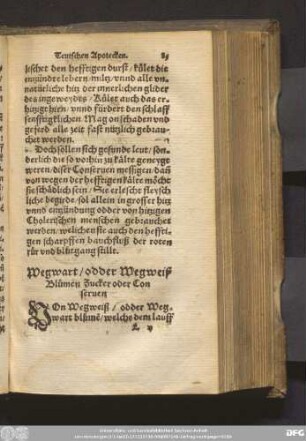 Teutschen Apotecken. 89
leschet den hefftigen durst / kület die
enzündte lebern / miltz / vnnd alle vn-
natürliche hitz der innerlichen glider
des ingeweydes / Kület auch das er-
hitzigt hirn / vnnd fürdert den schlaff
senfftigklichen. Mag on schaden vnd
geferd alle zeit fast nützlich gebrau-
chet werden.
Doch söllen sich gesunde leut / son-
derlich die so vorhin zu kälte geneygt
weren / diser Conseruen messigen / daß
von wegen der hefftigen kälte möcht
sie schädlich sein / Sie erlesche fleysch
liche begirde / sol allein in grosser hitz
vnnd enzündung odder von hitzigen
Cholerischen menschen gebrauchet
werden. welichen sie auch den heffti-
gen scharpffen bauchfluß der roten
rür vnd blutgang stillt.
Wegwart / odder Wegweiß
Blumen Zucker oder Con
seruen
VOn Wegweiß / odder Weg-
wart blumē / welche dem lauff